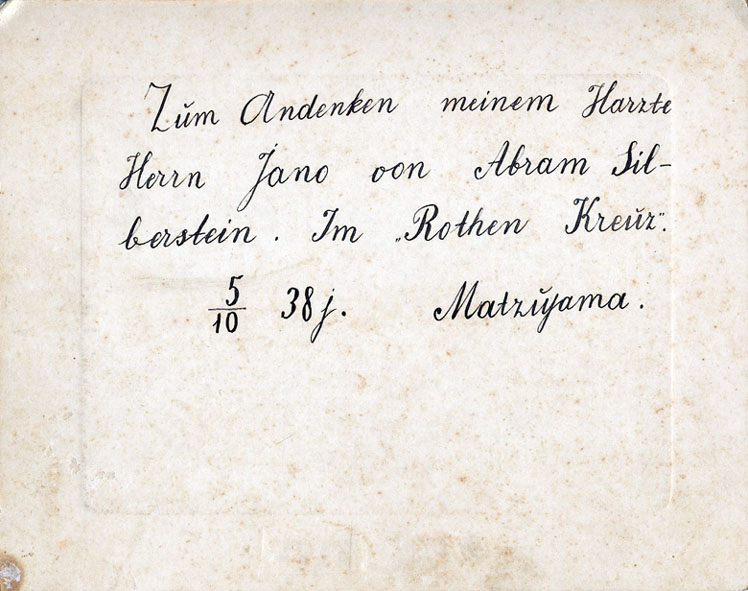 Zum Andenken meinem Harzte
Herrn Jano von Abram Sil-
berstein. Im „Rothen Kreuz".
5/10 38 j. Matzuyama.